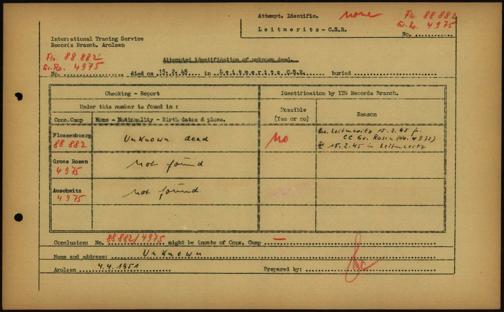 Attempt. Identific. none Fl. 88 882
Leitmeritz - C.S.R. Gr. Ro. 4975
No.
International Tracing Service
Records Branch, Arolsen
Fl. 88 882
Gr. Ro. 4975
Attempted identification of unknown dead.
No. died on 15.2.45 in Leitmeritz C.S.R. buried
Checking - Report
Identification by ITS Records Branch.
Under this number is found in:
Possible
(Yes or no)
Reason
Conc.Camp Name - Nationality - Birth date & place.
Flossenburg
88 882
Unknown dead
no
Leitmeritz 15.2.45 f.
CC Gr. Rosen (No. 4975)
15.2.45 in Leitmeritz
Gross Rosen
4975
not found
Auschwitz
4975
not found
Conclusion: No. 88 882/4975 might be inmate of Conc. Camp —
Name and address: Unknown
Arolsen 4.4.1951 Prepared by: